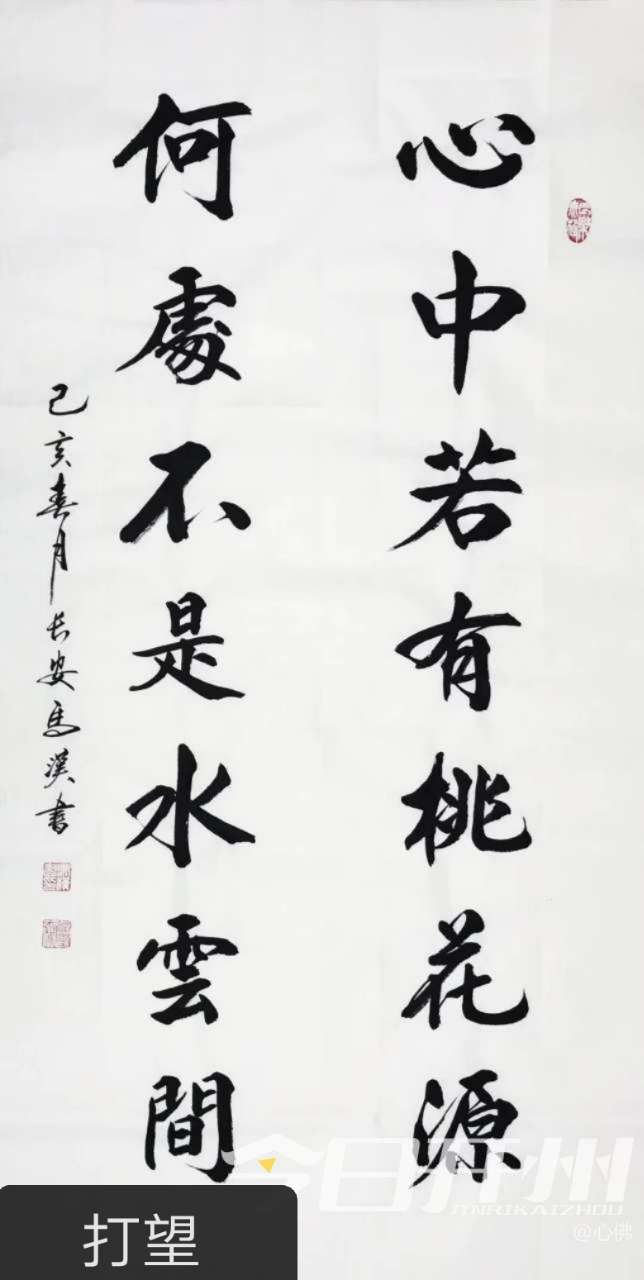 心中若有桃花源
何處不是水雲間
己亥春月长安馬漢書
今日开州
JINRIKAIZHOU
@心佛
打望